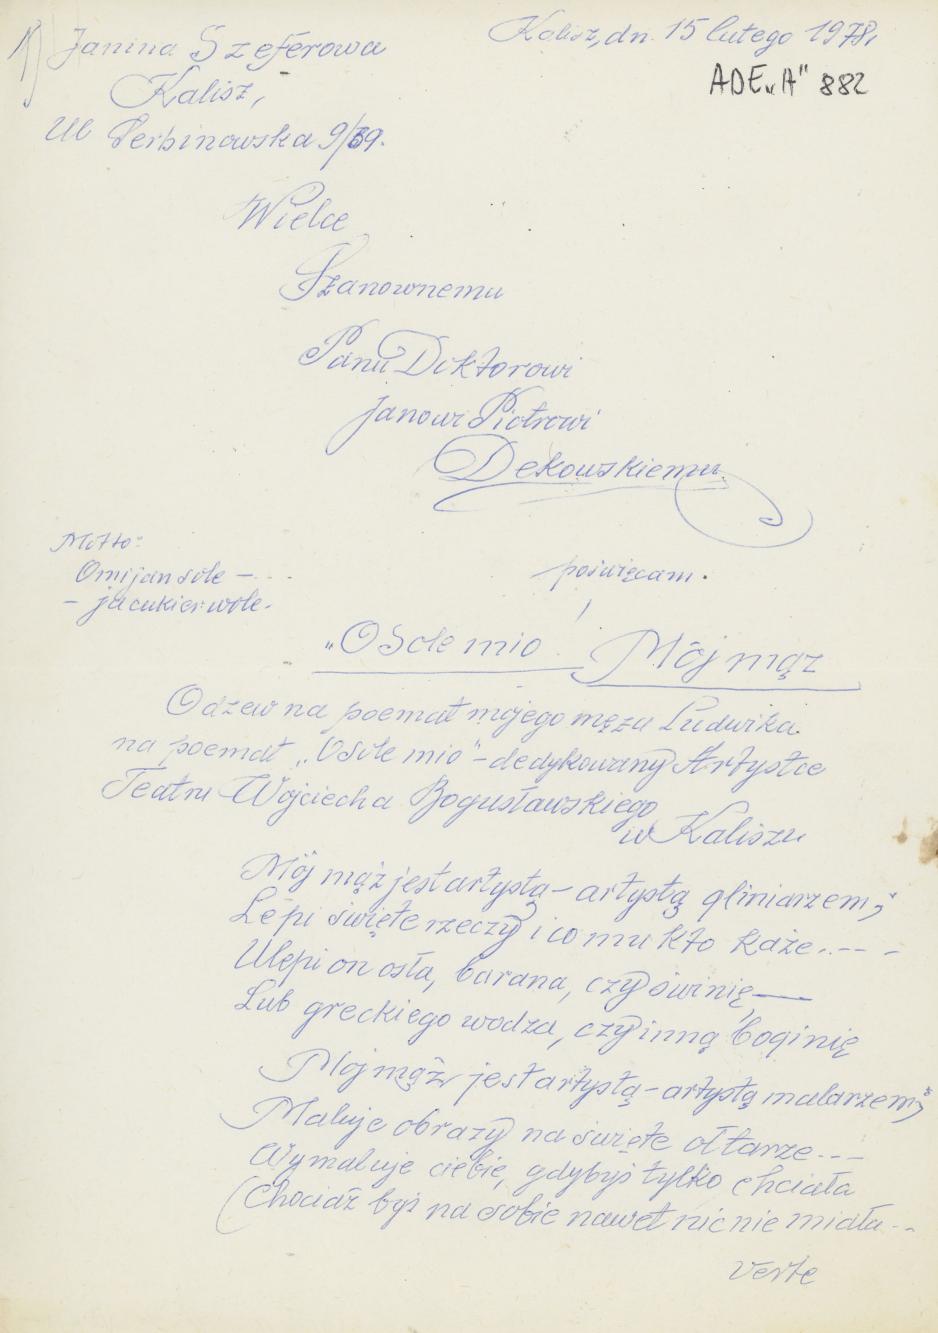 1) Janina Szeferowa
Kalisz, dn. 15 lutego 1978r.
ADE „A" 882
Kalisz,
Ul Serbinowska 9/69.
Wielce
Szanownemu
Panu Doktorowi
Janowi Piotrowi
Dekowskiemu
Motto:
Omijan sole –
– ja cukier wole.
poświęcam.
„O Sole mio! Mój mąż
Odzew na poemat mojego męża Ludwika
na poemat „O Sole mio" – dedykowany Artystce
Teatru Wojciecha Bogusławskiego
w Kaliszu
Mój mąż jest artystą – artystą gliniarzem,
Lepi święte rzeczy i co mu kto każe..--  -
Ulepi on osła, barana, czy świnię, —
Lub greckiego wodza, czy inną boginię
Mój mąż jest artystą – artystą malarzem,
Maluje obrazy na święte ołtarze...-
Wymaluje ciebie, gdybyś tylko chciała
(Chociaż byś na sobie nawet nic nie miała..
verte